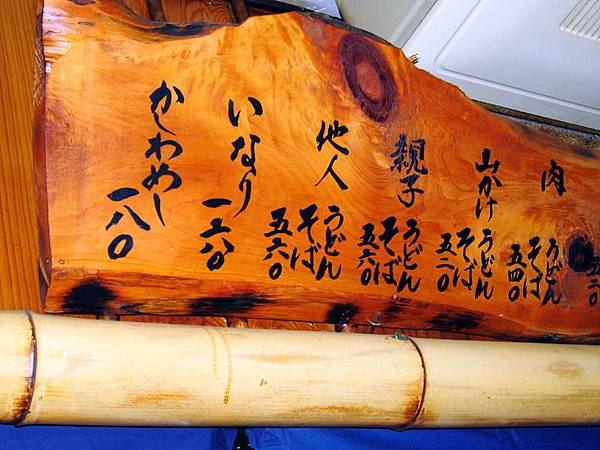 五二〇
肉
うどん
そば
五四〇
山かけ
うどん
そば
五二〇
親子
うどん
そば
五六〇
他人
うどん
そば
五六〇
いなり
一六〇
かしわめし
一八〇